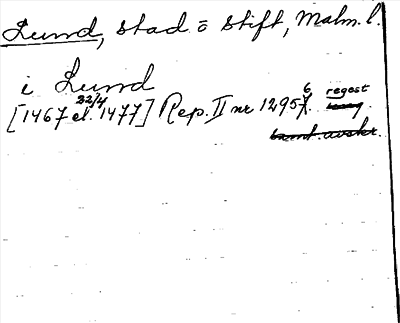 Lund, stad o stift, Malm. l.
i Lund
[1467 el. 22/4 1477] Rep. II nr 12956 regest
samt. avskr.